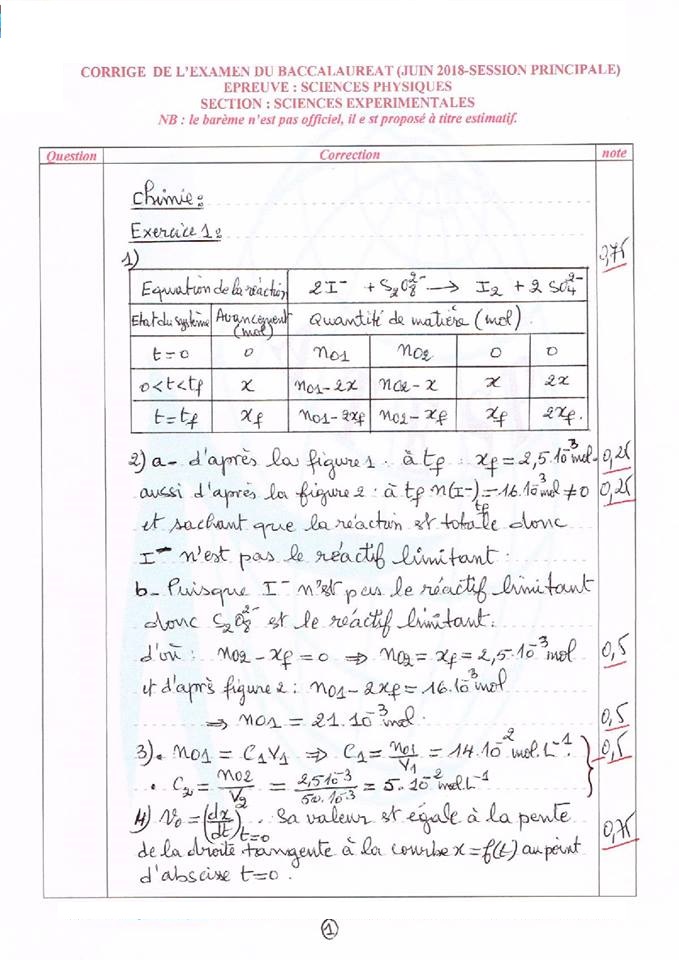 CORRIGE DE L'EXAMEN DU BACCALAUREAT (JUIN 2018-SESSION PRINCIPALE)
EPREUVE : SCIENCES PHYSIQUES
SECTION : SCIENCES EXPERIMENTALES
NB : le barème n'est pas officiel, il e st proposé à titre estimatif.
Question Correction note
Chimie :
Exercice 1 :
1) 0,75
Equation de la réaction 2I⁻ + S₂O₈²⁻ → I₂ + 2 SO₄²⁻
Etat du système Avancement (mol) Quantité de matière (mol).
t = 0 0 n01 n02 0 0
0 < t < tf x n01 - 2x n02 - x x 2x
t = tf xf n01 - 2xf n02 - xf xf 2xf.
2) a- d'après la figure 1 : à tf : xf = 2,5.10⁻³ mol- 0,25
aussi d'après la figure 2 : à tf n(I⁻)tf = 16.10⁻³ mol ≠ 0 0,25
et sachant que la réaction est totale donc
I⁻ n'est pas le réactif limitant.
b- Puisque I⁻ n'est pas le réactif limitant
donc S₂O₈²⁻ est le réactif limitant.
d'où : n02 - xf = 0 ⇒ n02 = xf = 2,5.10⁻³ mol 0,5
et d'après figure 2 : n01 - 2xf = 16.10⁻³ mol
⇒ n01 = 21.10⁻³ mol. 0,5
3) • n01 = C1V1 ⇒ C1 = n01/V1 = 14.10⁻² mol.L⁻¹. 0,5
• C2 = n02/V2 = 2,5.10⁻³/50.10⁻³ = 5.10⁻² mol.L⁻¹
4) V0 = (dx/dt)t=0. Sa valeur est égale à la pente 0,75
de la droite tangente à la courbe x = f(t) au point
d'abscisse t=0.
1